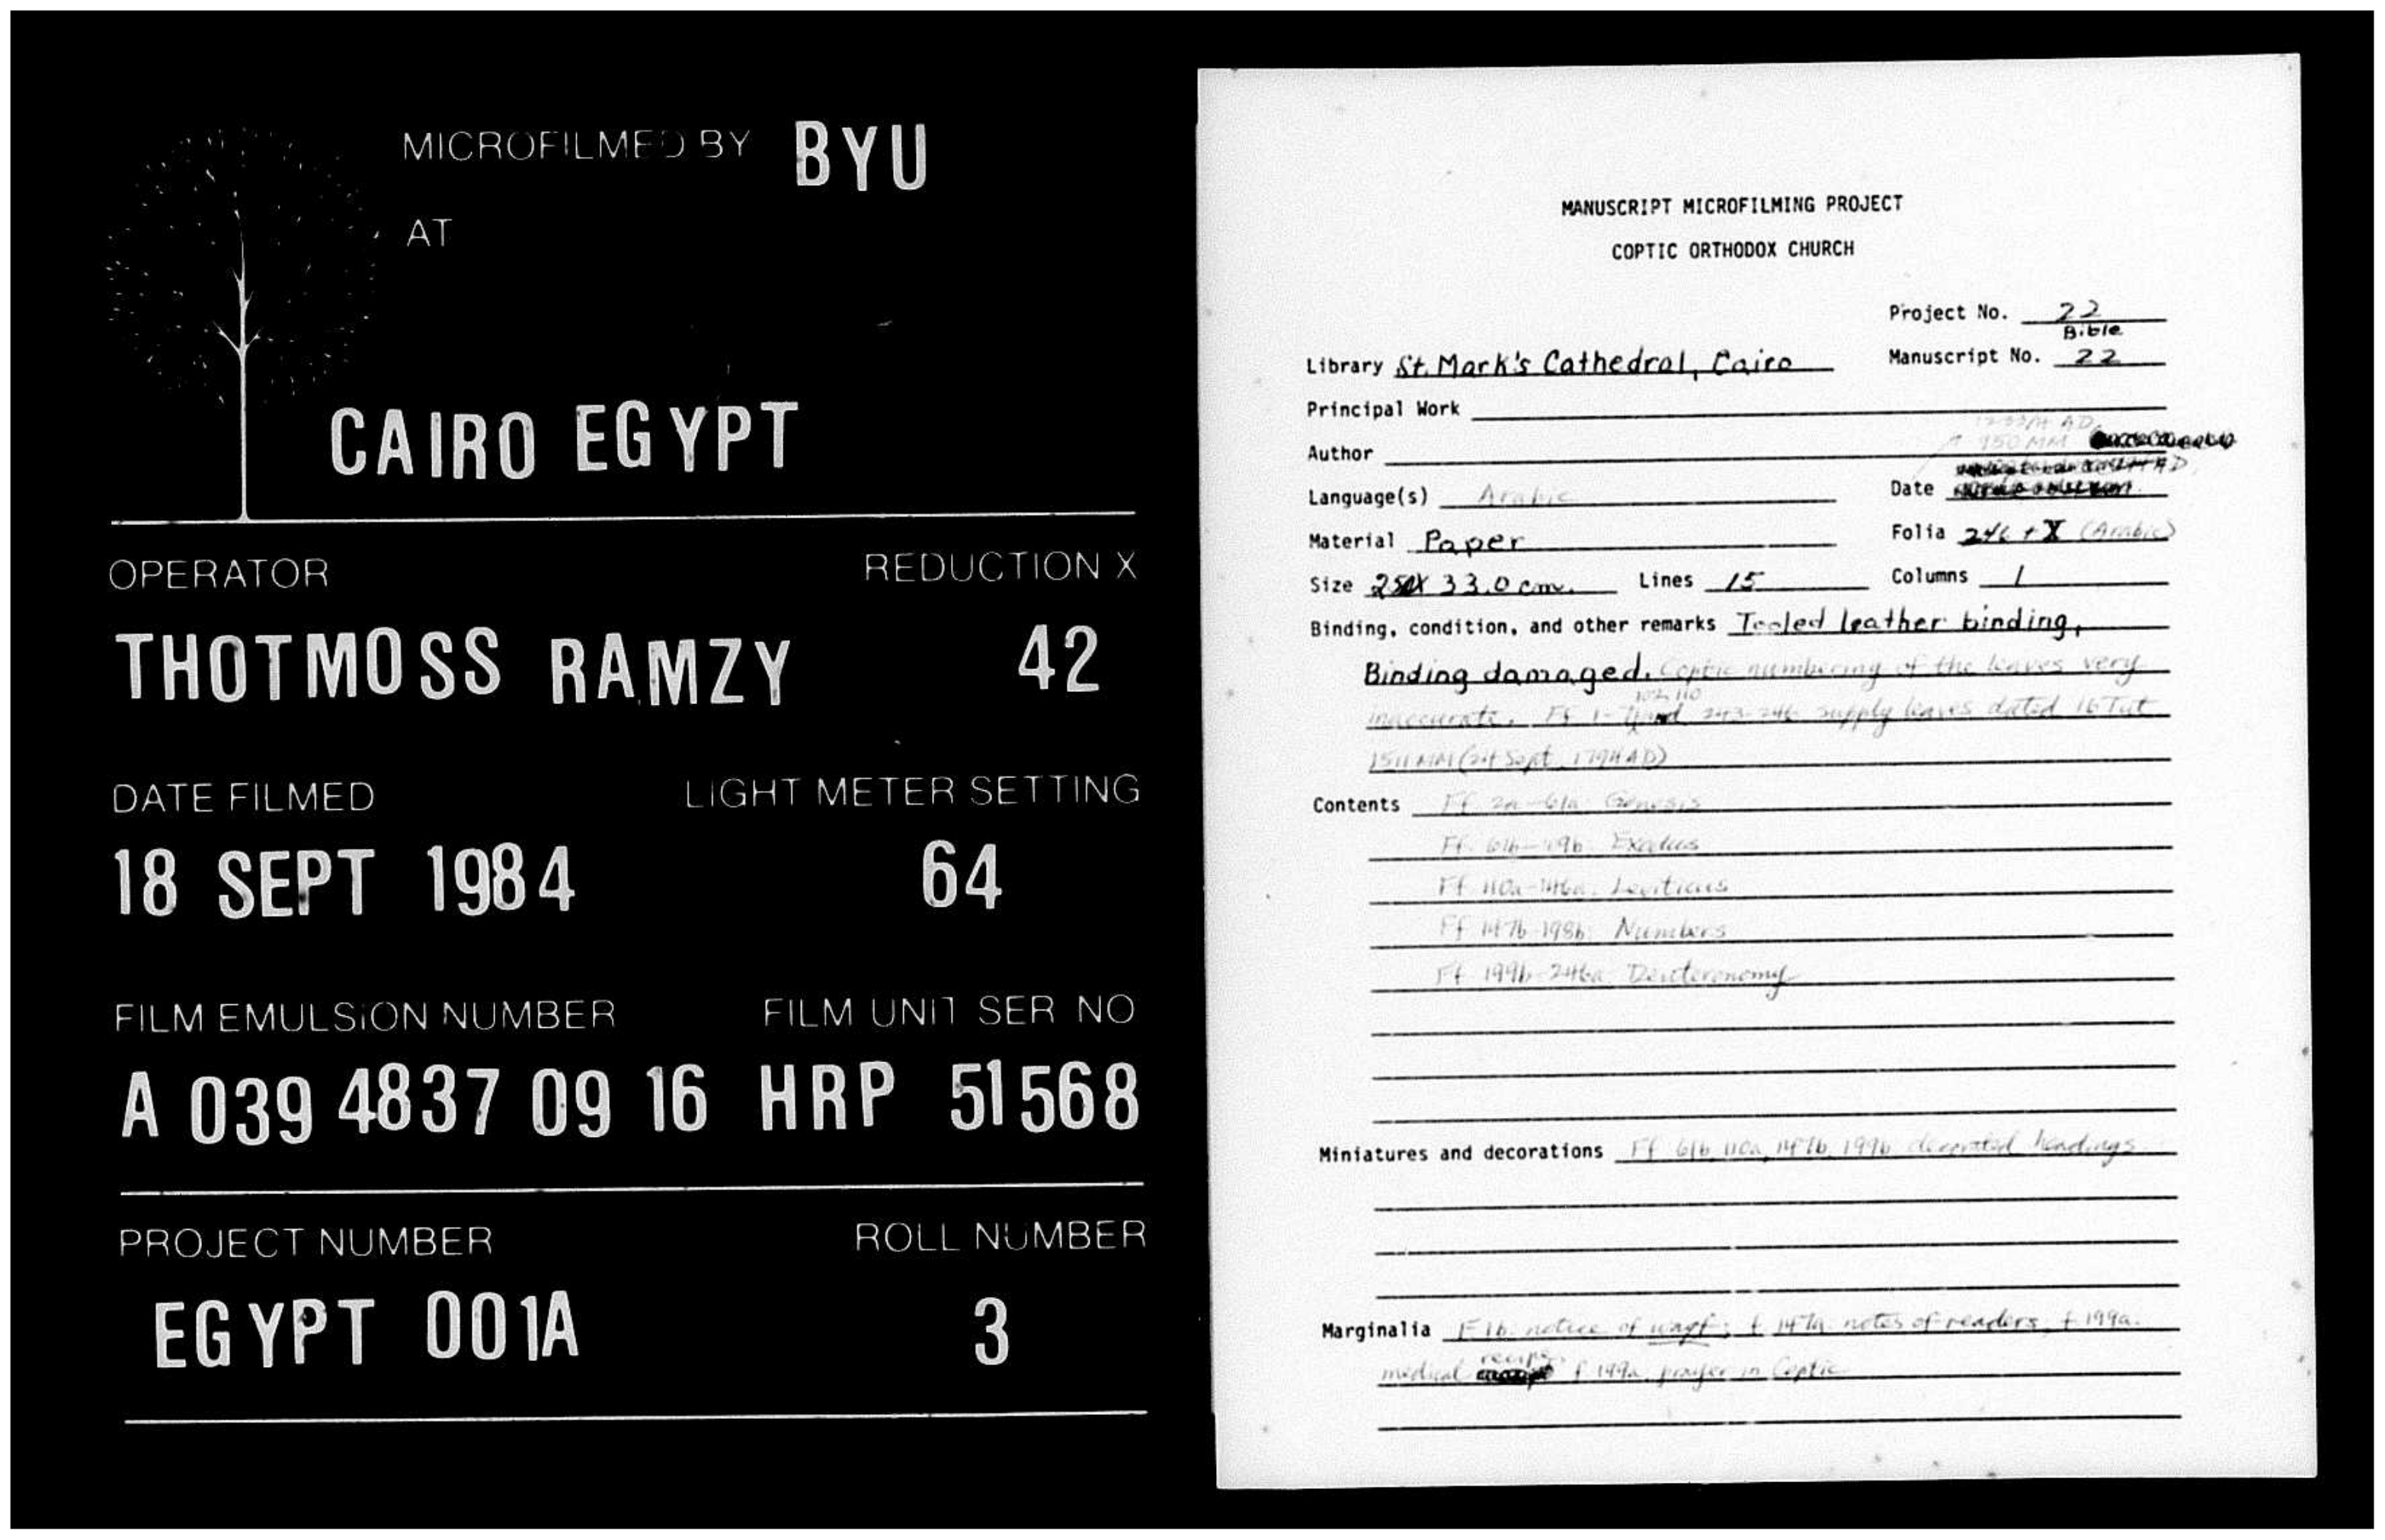 MICROFILMED BY BYU
AT
CAIRO EGYPT
OPERATOR REDUCTION X
THOTMOSS RAMZY 42
DATE FILMED LIGHT METER SETTING
18 SEPT 1984 64
FILM EMULSION NUMBER FILM UNIT SER NO
A 039 4837 09 16 HRP 51568
PROJECT NUMBER ROLL NUMBER
EGYPT 001A 3
MANUSCRIPT MICROFILMING PROJECT
COPTIC ORTHODOX CHURCH
Project No. 22
Bible
Library St. Mark's Cathedral, Cairo Manuscript No. 22
Principal Work
AD
Author 950 MM
AD
Language(s) Arabic Date
Material Paper Folia 246 + X (Arabic)
Size 33.0 cm. Lines 15 Columns 1
Binding, condition, and other remarks Tooled leather binding,
Binding damaged. Coptic numbering of the leaves very
102, 110
inaccurate. Ff 1- and 243-246 supply leaves dated 16 Tut
1511 MM (24 Sept 1794 AD)
Contents Ff. 2a-61a: Genesis
Ff. 61b-109b: Exodus
Ff 110a-146a: Leviticus
Ff 147b-198b: Numbers
Ff 199b-246a: Deuteronomy
Miniatures and decorations Ff 61b, 110a, 147b, 199b decorated headings
Marginalia F 1b: notice of waqf; f. 147a notes of readers, f 199a.
recipe
medical f 199a prayer in Coptic